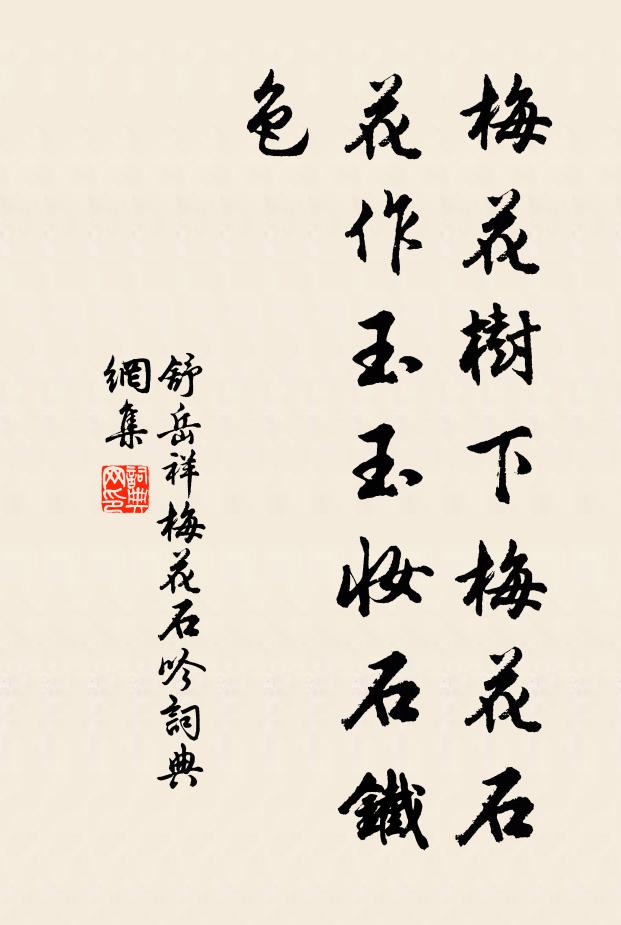 梅花樹下梅花石
花作玉玉妝石鐵
色
舒岳祥梅花石吟詞典
網集
詞典
网印